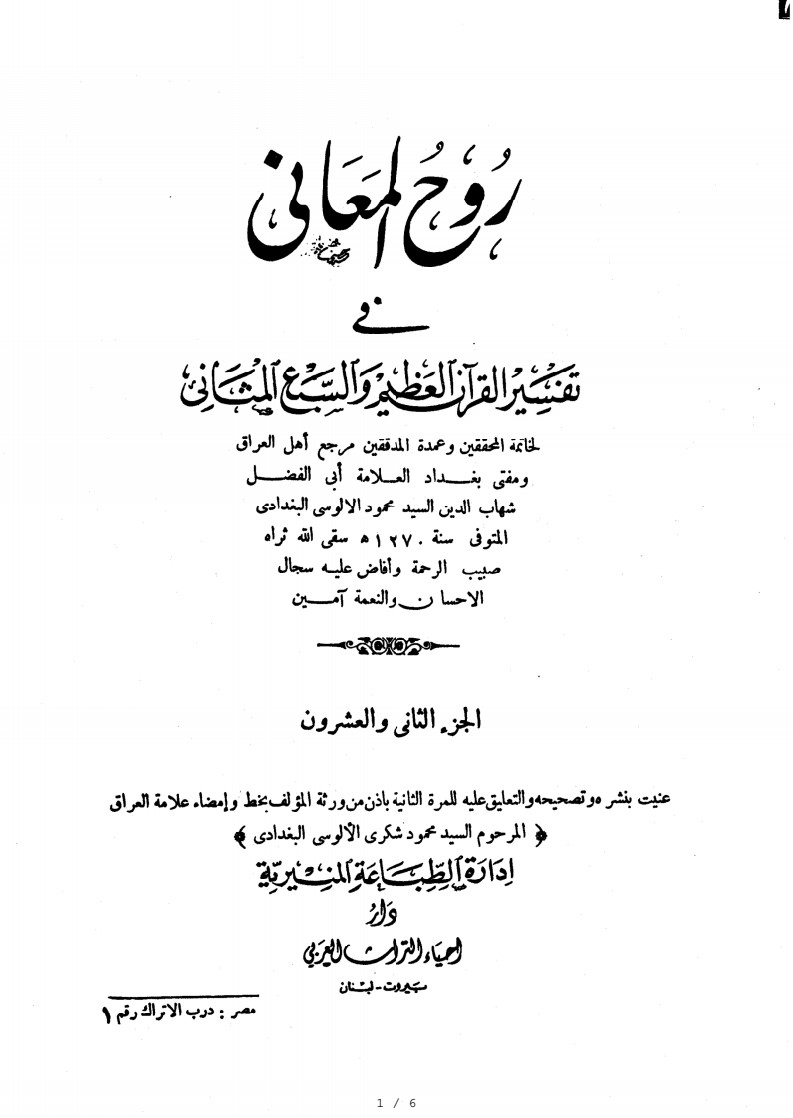 رُوحُ المَعَانى
فى
تفسير القرآن العظيم والسبع المثانى
لخاتمة المحققين وعمدة المدققين مرجع أهل العراق
ومفتى بغداد العلامة أبى الفضل
شهاب الدين السيد محمود الالوسى البغدادى
المتوفى سنة ١٢٧٠ ه سقى الله ثراه
صبيب الرحمة وأفاض عليه سجال
الاحسان والنعمة آمين
الجزء الثانى والعشرون
عنيت بنشره وتصحيحه والتعليق عليه للمرة الثانية باذن من ورثة المؤلف بخط وإمضاء علامة العراق
﴿ المرحوم السيد محمود شكرى الألوسى البغدادى ﴾
إدارة الطباعة المنيرية
دار
احياء التراث العربي
بيروت - لبنان
مصر : درب الاتراك رقم ١
1 / 6